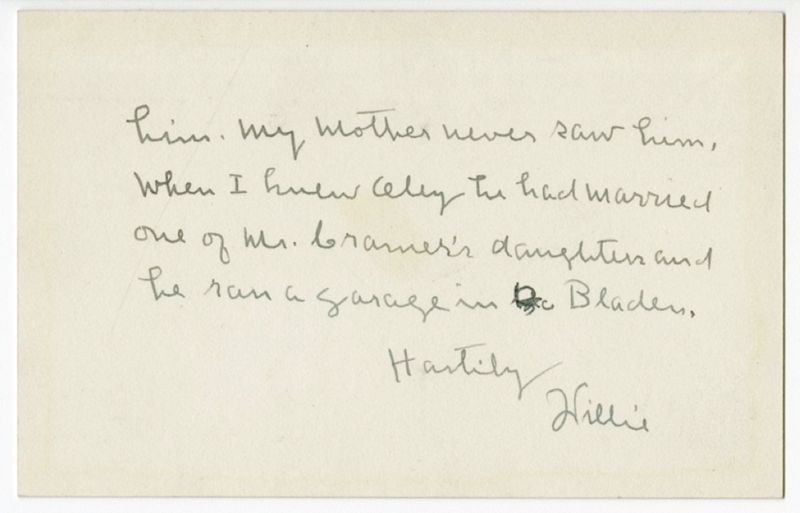 him. My Mother never saw him,
When I knew Oley he had married
one of Mr. Cramer's daughters and
he ran a garage in Bladen.
Hastily
Willie